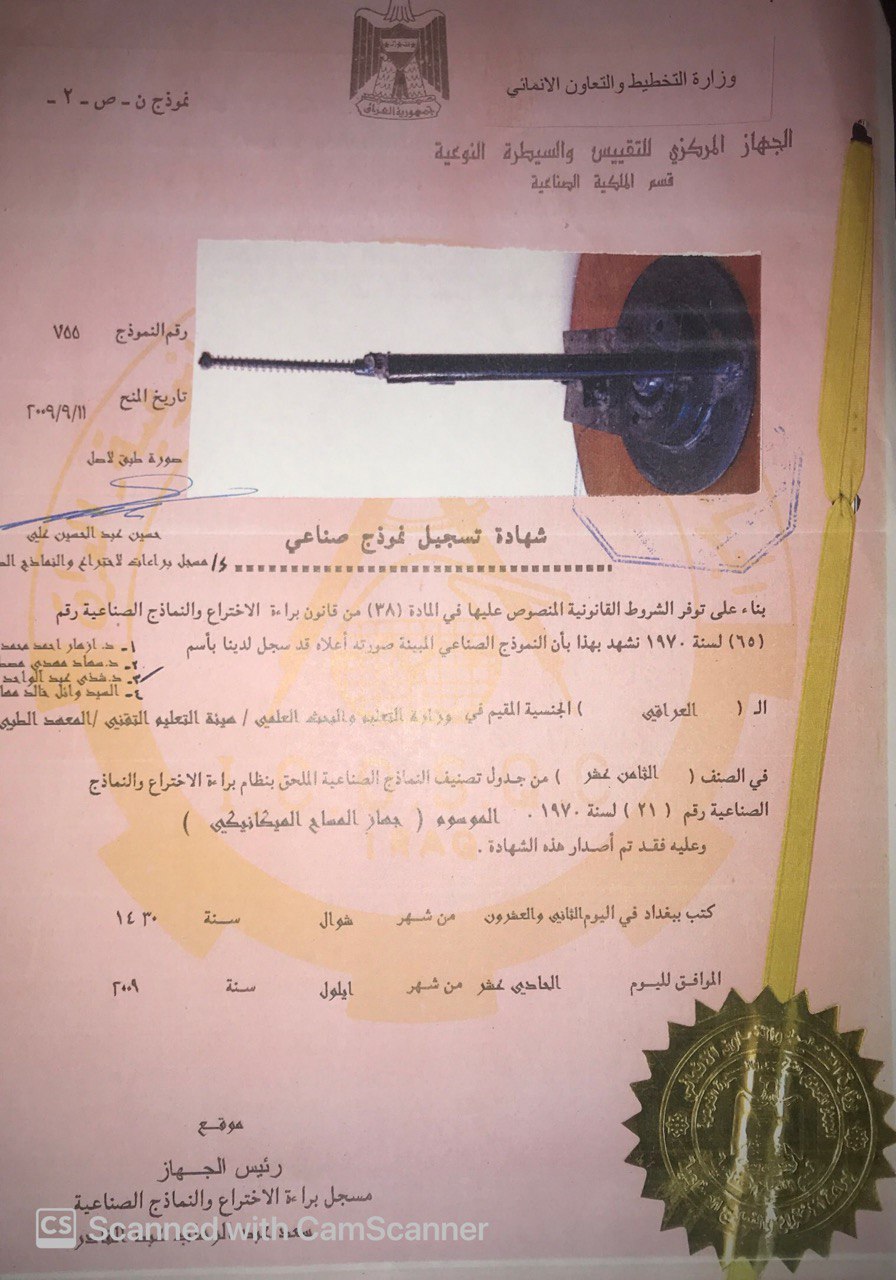 جمهورية العراق
وزارة التخطيط والتعاون الانمائي
نموذج ن - ص - ٢ -
الجهاز المركزي للتقييس والسيطرة النوعية
قسم الملكية الصناعية
رقم النموذج ٧٥٥
تاريخ المنح ٢٠٠٩/٩/١١
صورة طبق لاصل
حسين عبد الحسين علي
مسجل براءات لاختراع والنماذج
شهادة تسجيل نموذج صناعي
بناء على توفر الشروط القانونية المنصوص عليها في المادة (٣٨) من قانون براءة الاختراع والنماذج الصناعية رقم
(٦٥) لسنة ١٩٧٠ نشهد بهذا بأن النموذج الصناعي المبينة صورته أعلاه قد سجل لدينا بأسم
١- د. ازهار احمد
٢- د. سعاد مهدي
٣- د. شذى عبد الواحد
٤- السيد وائل خالد
الـ ( العراقي ) الجنسية المقيم في وزارة التعليم والبحث العلمي / هيئة التعليم التقني / المعهد الطبي
في الصنف ( الثامن عشر ) من جدول تصنيف النماذج الصناعية الملحق بنظام براءة الاختراع والنماذج
الصناعية رقم ( ٢١ ) لسنة ١٩٧٠ . الموسوم ( جهاز المساج الميكانيكي )
وعليه فقد تم أصدار هذه الشهادة .
كتب ببغداد في اليوم الثاني والعشرون من شهر شوال سنة ١٤٣٠
الموافق لليوم الحادي عشر من شهر ايلول سنة ٢٠٠٩
موقع
رئيس الجهاز
مسجل براءة الاختراع والنماذج الصناعية
CS Scanned with CamScanner